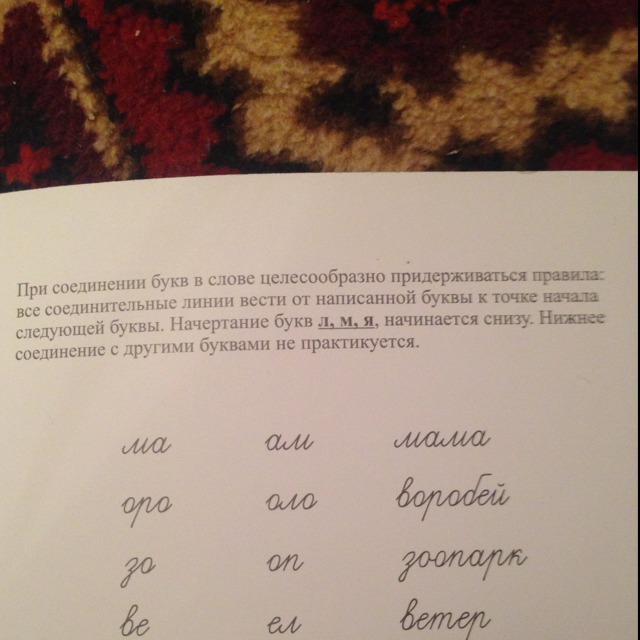 При соединении букв в слове целесообразно придерживаться правила:
все соединительные линии вести от написанной буквы к точке начала
следующей буквы. Начертание букв л, м, я, начинается снизу. Нижнее
соединение с другими буквами не практикуется.
ма ам мама
оро оло воробей
зо оп зоопарк
ве ел ветер